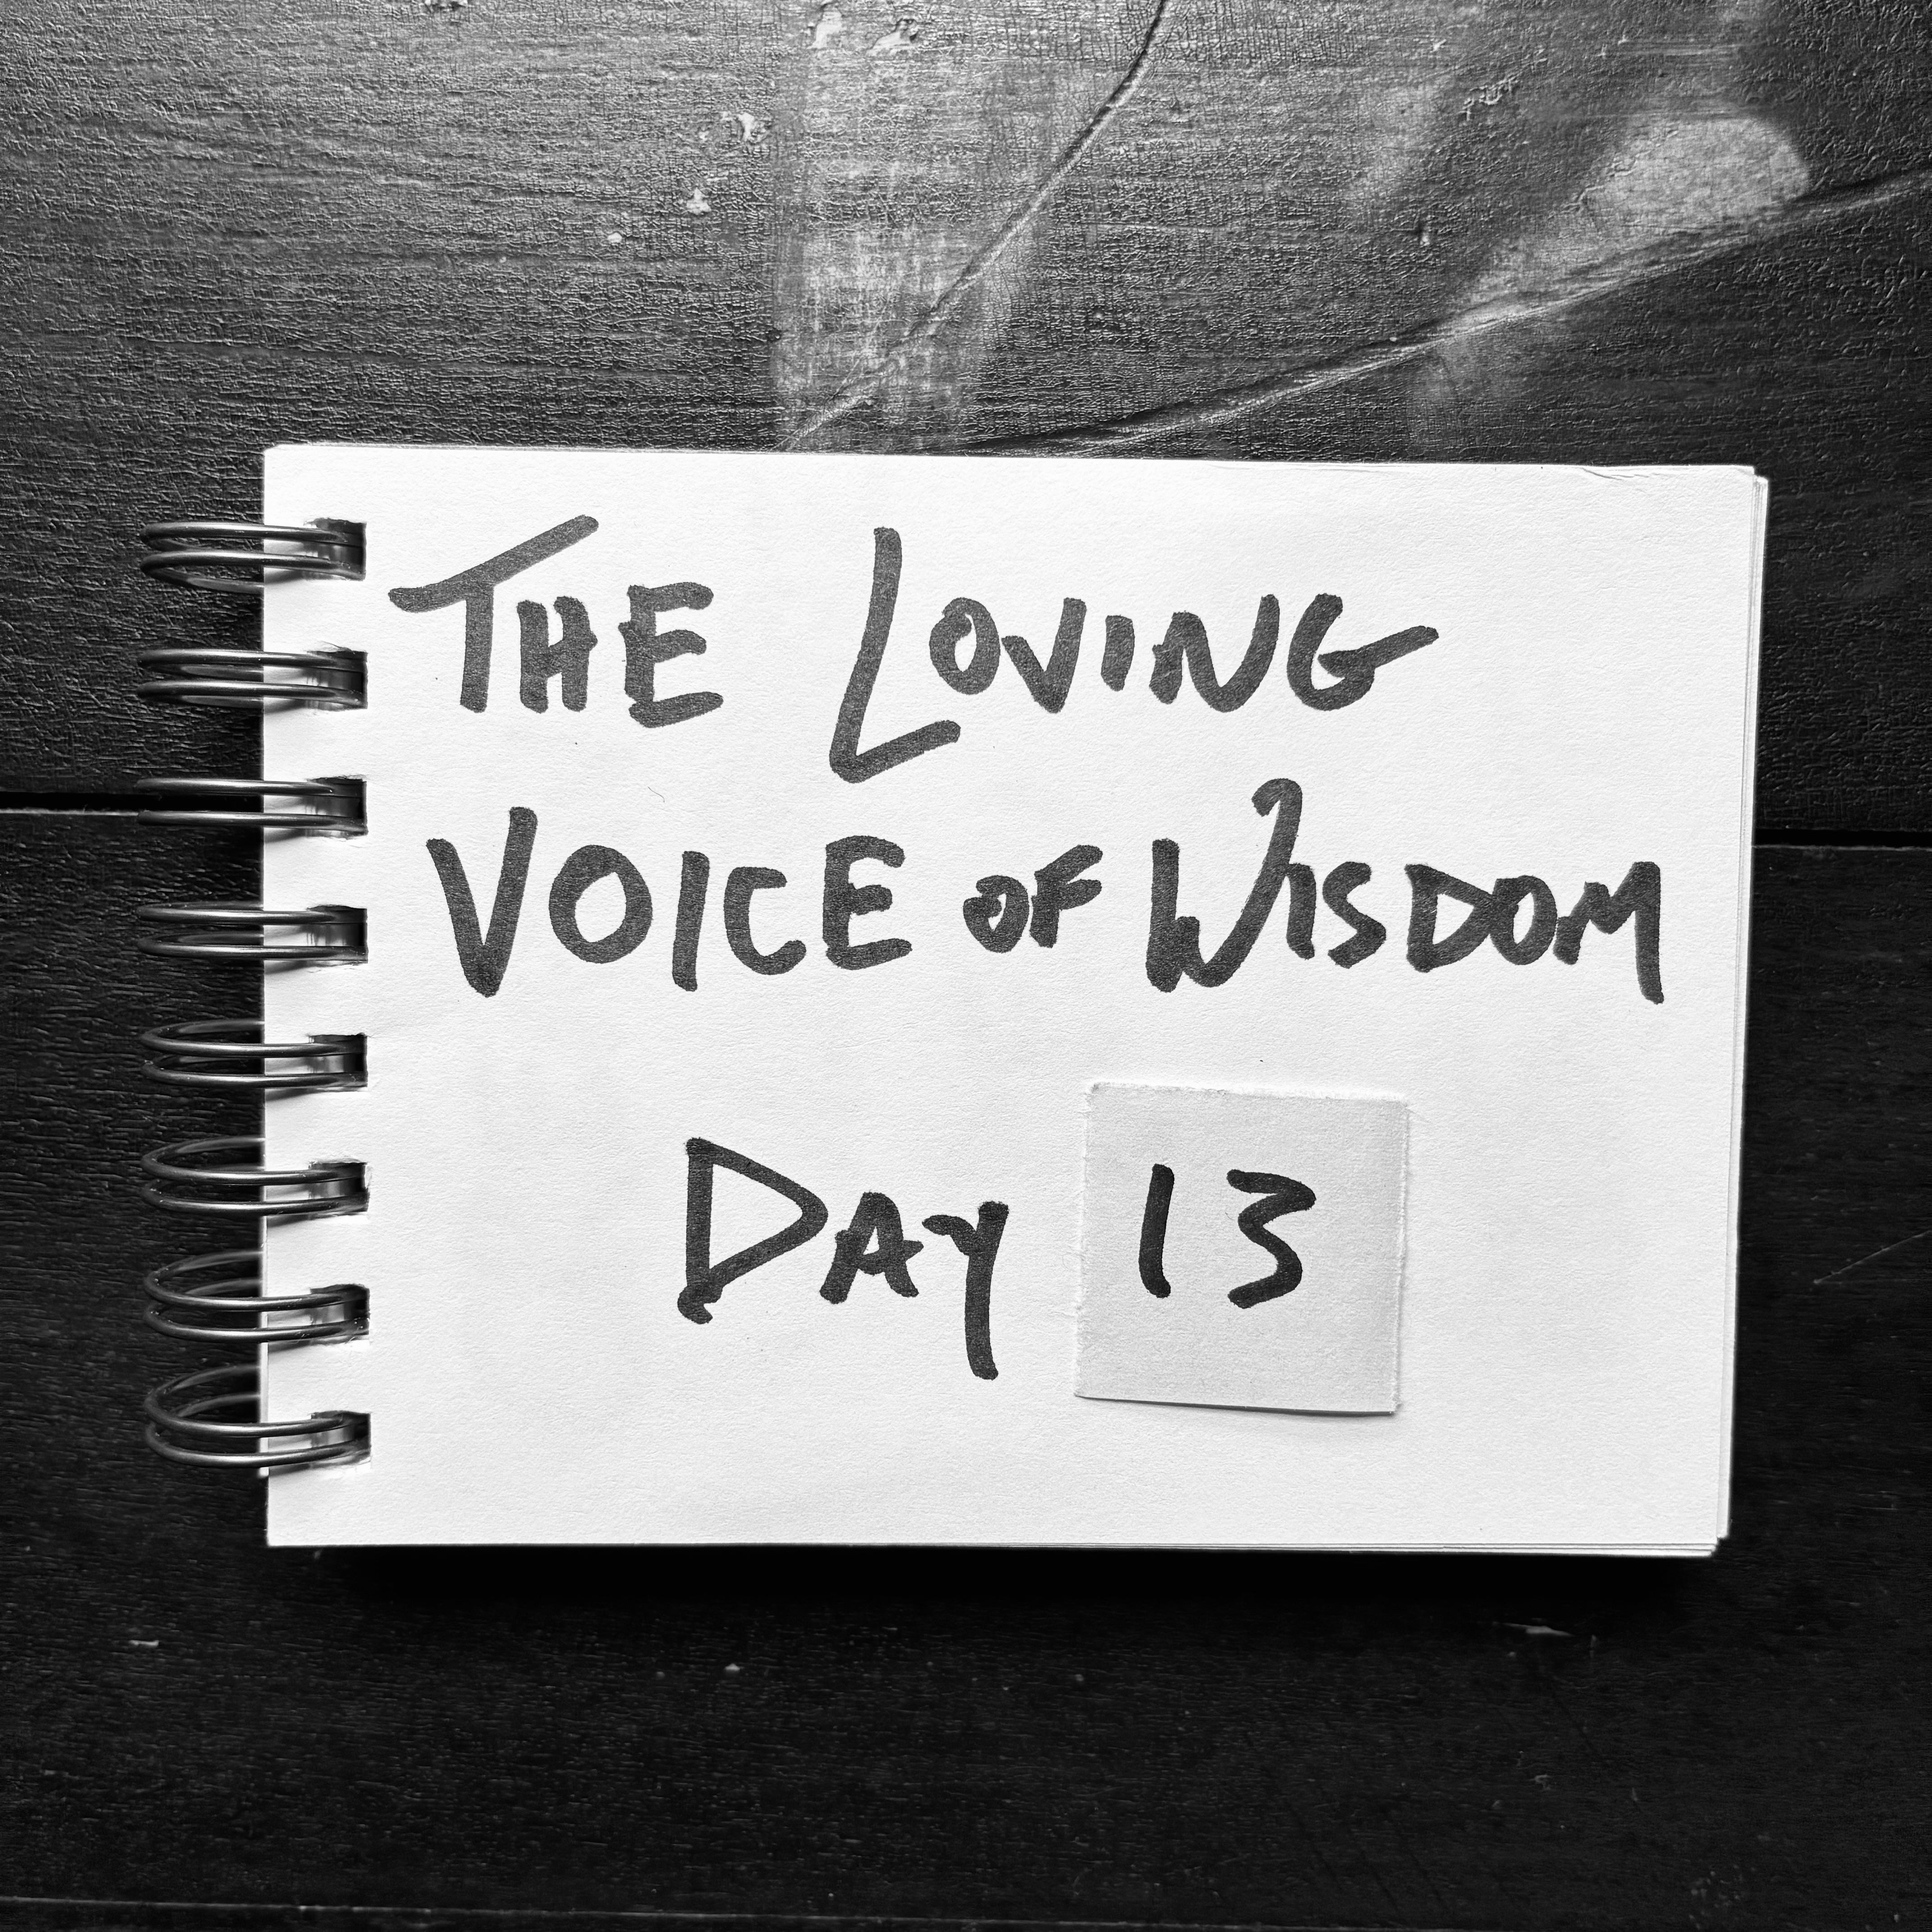 THE LOVING
VOICE OF WISDOM
DAY 13